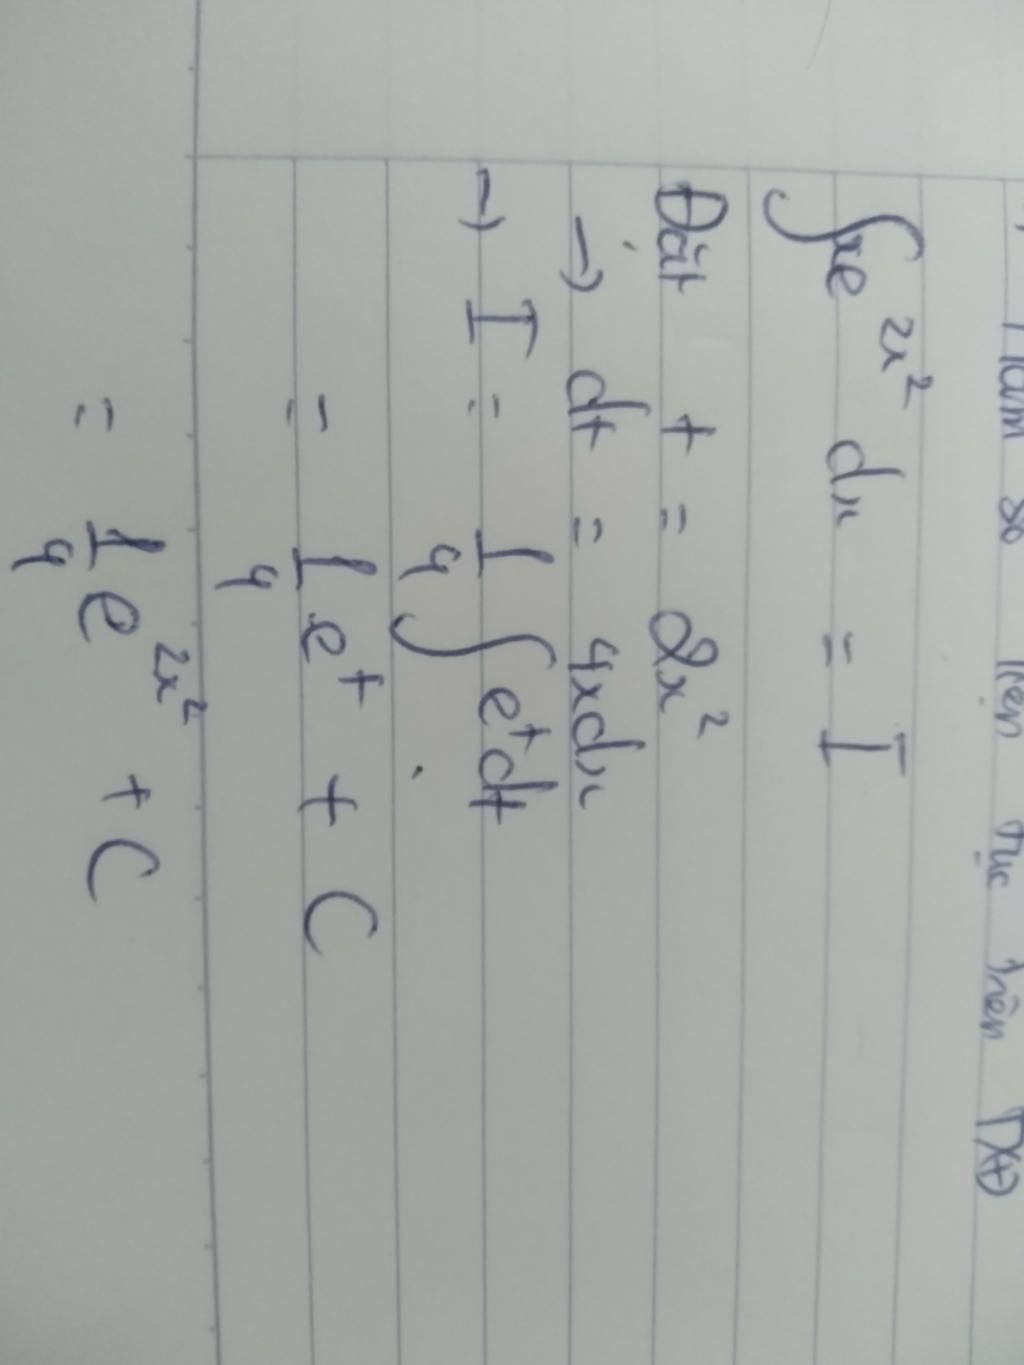 Hàm số liên tục trên TXĐ
∫xe^{2x^2} dx = I
Đặt t = 2x^2
→ dt = 4xdx
→ I = 1/4 ∫e^t dt
= 1/4 e^t + C
= 1/4 e^{2x^2} + C